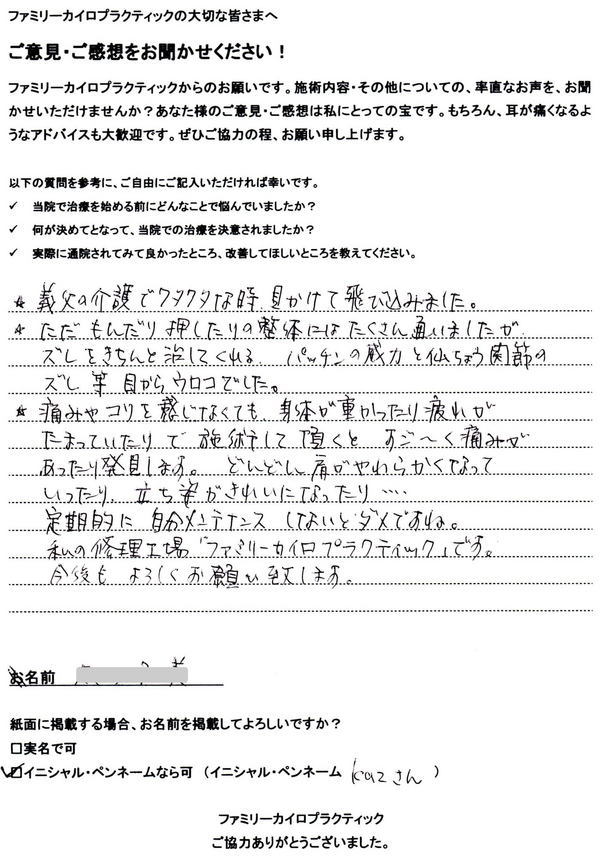 ファミリーカイロプラクティックの大切な皆さまへ
ご意見・ご感想をお聞かせください！
ファミリーカイロプラクティックからのお願いです。施術内容・その他についての、率直なお声を、お聞
かせいただけませんか？あなた様のご意見・ご感想は私にとっての宝です。もちろん、耳が痛くなるよ
うなアドバイスも大歓迎です。ぜひご協力の程、お願い申し上げます。
以下の質問を参考に、ご自由にご記入いただければ幸いです。
✓ 当院で治療を始める前にどんなことで悩んでいましたか？
✓ 何が決めてとなって、当院での治療を決意されましたか？
✓ 実際に通院されてみて良かったところ、改善してほしいところを教えてください。
☆ 義父の介護でクタクタな時、見かけて飛び込みました。
☆ ただ もんだり 押したりの整体には たくさん 通いましたが
ズレをきちんと治してくれる パッチンの威力と仙ちょう関節の
ズレ 等 目からウロコでした。
☆ 痛みやコリを感じなくても、身体が重かったり疲れが
たまっていたりで 施術して頂くと すご〜く痛みが
あったり発見します。 どんどん肩がやわらかくなって
いったり、立ち姿がきれいになったり…
定期的に 自分メンテナンス しないとダメですね。
私の修理工場「ファミリーカイロプラクティック」です。
今後も よろしくお願い致します。
お名前
紙面に掲載する場合、お名前を掲載してよろしいですか？
□実名で可
☑イニシャル・ペンネームなら可 （イニシャル・ペンネーム kazさん ）
ファミリーカイロプラクティック
ご協力ありがとうございました。